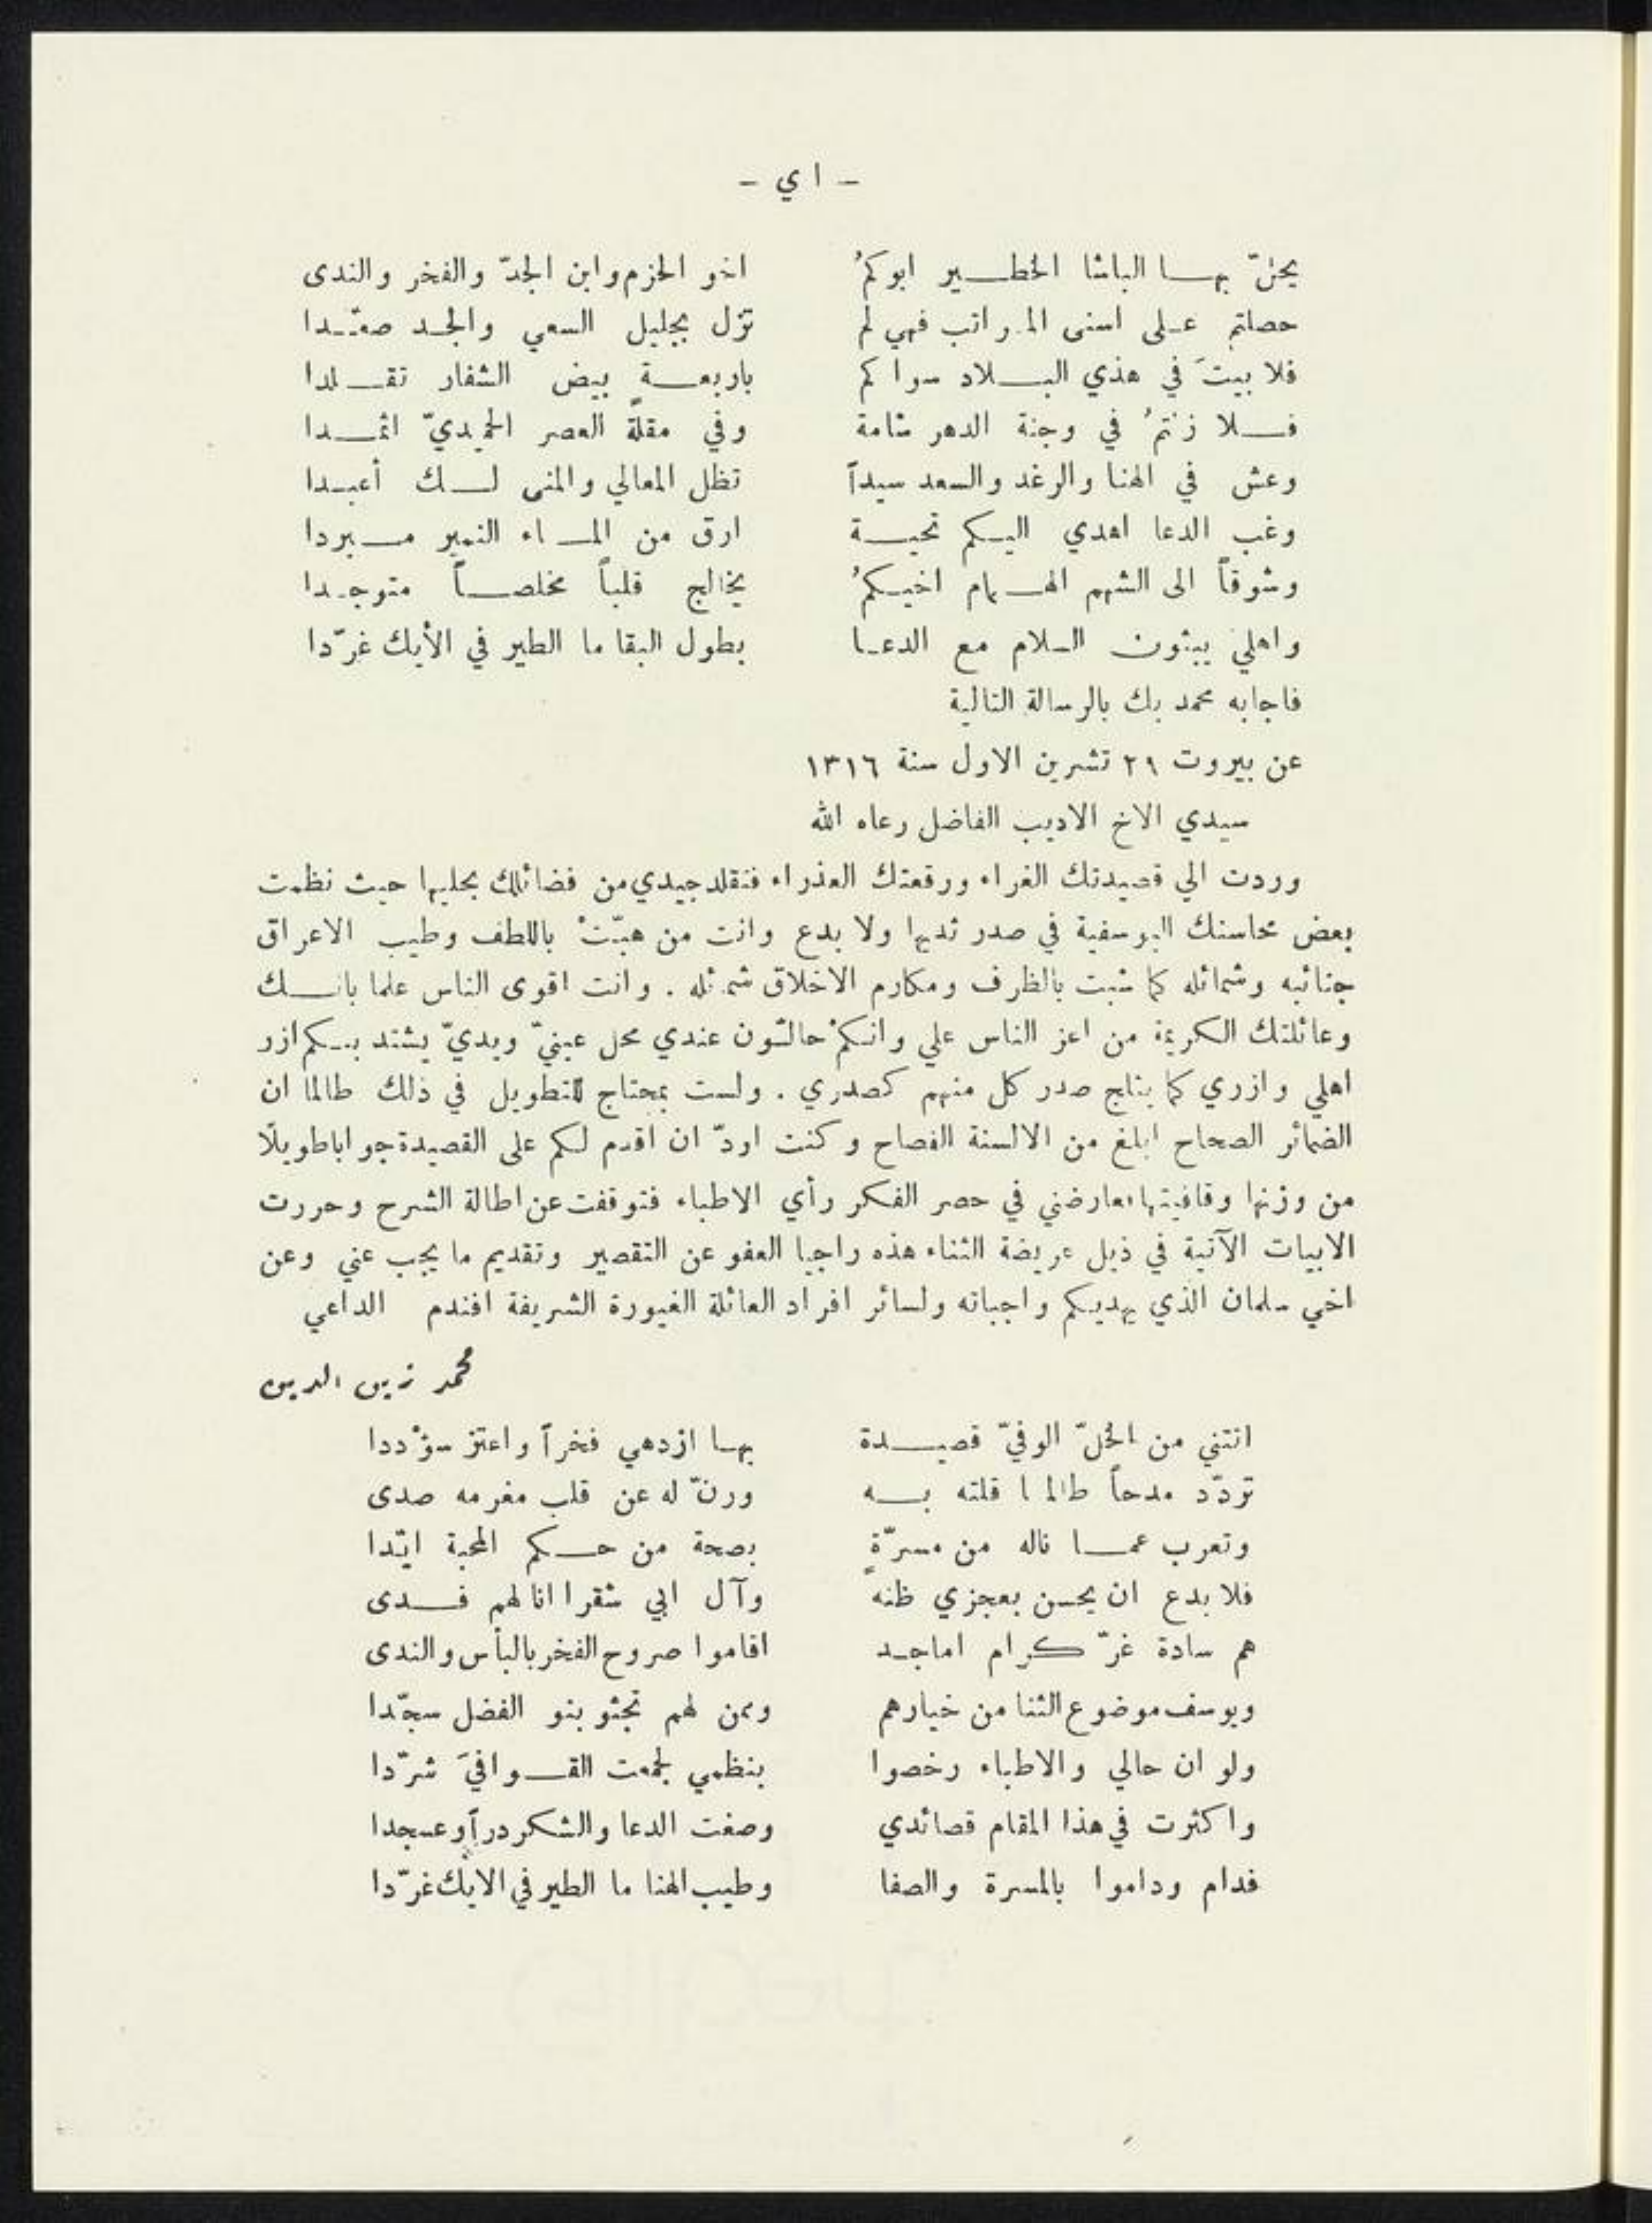 - ا ي -
يحنّ بها الباشا الخطير ابوكمُ اخو الحزم وابن الجدّ والفخر والندى
حصلتم على اسنى المراتب فهي لم تزل بجليل السعي والجد صعّدا
فلا بيتَ في هذي البلاد سواكم باربعة بيض الشفار تقلدا
فلا زلتمُ في وجنة الدهر شامة وفي مقلة العصر الحميديّ اثمدا
وعش في الهنا والرغد والسعد سيداً تظل المعالي والمنى لك أعبدا
وغب الدعا اهدي اليكم تحية ارق من الماء النمير مبردا
وشوقاً الى الشهم الهمام اخيكمُ يخالج قلباً مخلصاً متوجدا
واهلي يبثون السلام مع الدعا بطول البقا ما الطير في الأيك غرّدا
فاجابه محمد بك بالرسالة التالية
عن بيروت ٢٩ تشرين الاول سنة ١٣١٦
سيدي الاخ الاديب الفاضل رعاه الله
وردت الي قصيدتك الغراء ورقعتك العذراء فتقلد جيدي من فضائلك بحليها حيث نظمت
بعض محاسنك اليوسفية في صدر ثديها ولا بدع وانت من هبّتْ باللطف وطيب الاعراق
جنائبه وشمائله كما شبت بالظرف ومكارم الاخلاق شمائله . وانت اقوى الناس علما بانك
وعائلتك الكريمة من اعز الناس علي وانكمْ حالّون عندي محل عينيّ ويديّ يشتد بكم ازر
اهلي وازري كما يثلج صدر كل منهم كصدري . ولست بمحتاج للتطويل في ذلك طالما ان
الضمائر الصحاح ابلغ من الالسنة الفصاح وكنت اودّ ان اقدم لكم على القصيدة جوابا طويلًا
من وزنها وقافيتها فعارضني في حصر الفكر رأي الاطباء فتوقفت عن اطالة الشرح وحررت
الابيات الآتية في ذيل عريضة الثناء هذه راجيا العفو عن التقصير وتقديم ما يجب عني وعن
اخي سلمان الذي يهديكم واجباته ولسائر افراد العائلة الغيورة الشريفة افندم الداعي
محمد زين الدين
اتتني من الخلّ الوفيّ قصيدة بها ازدهي فخراً واعتز سؤْددا
تردّد مدحاً طالما قلته به ورنّ له عن قلب مغرمه صدى
وتعرب عما ناله من مسرّةٍ بصحة من حكم المحبة ايّدا
فلا بدع ان يحسن بعجزي ظنه وآل ابي شقرا انا لهم فدى
هم سادة غرّ كرام اماجد اقاموا صروح الفخر بالبأس والندى
ويوسف موضوع الثنا من خيارهم ومن لهم تجثو بنو الفضل سجّدا
ولو ان حالي والاطباء رخصوا بنظمي لجمعت القوافيَ شرّدا
واكثرت في هذا المقام قصائدي وصغت الدعا والشكر دراً وعسجدا
فدام وداموا بالمسرة والصفا وطيب الهنا ما الطير في الايك غرّدا